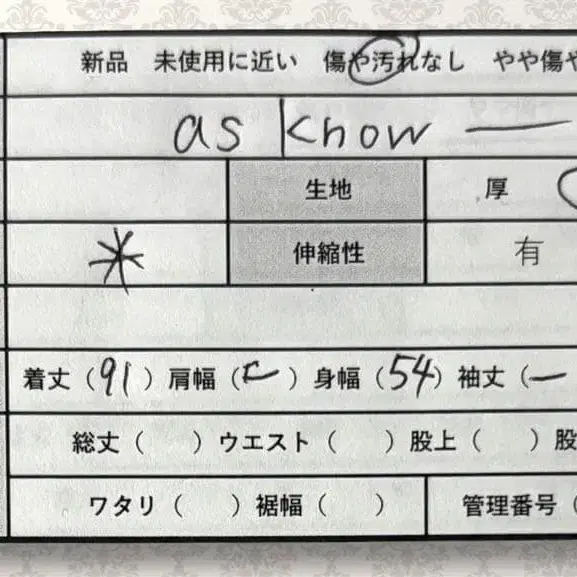 新品 未使用に近い 傷や汚れなし やや傷や
as know —
生地 厚
* 伸縮性 有
着丈(91)肩幅( )身幅(54)袖丈(—
総丈( )ウエスト( )股上( )股
ワタリ( )裾幅( ) 管理番号(